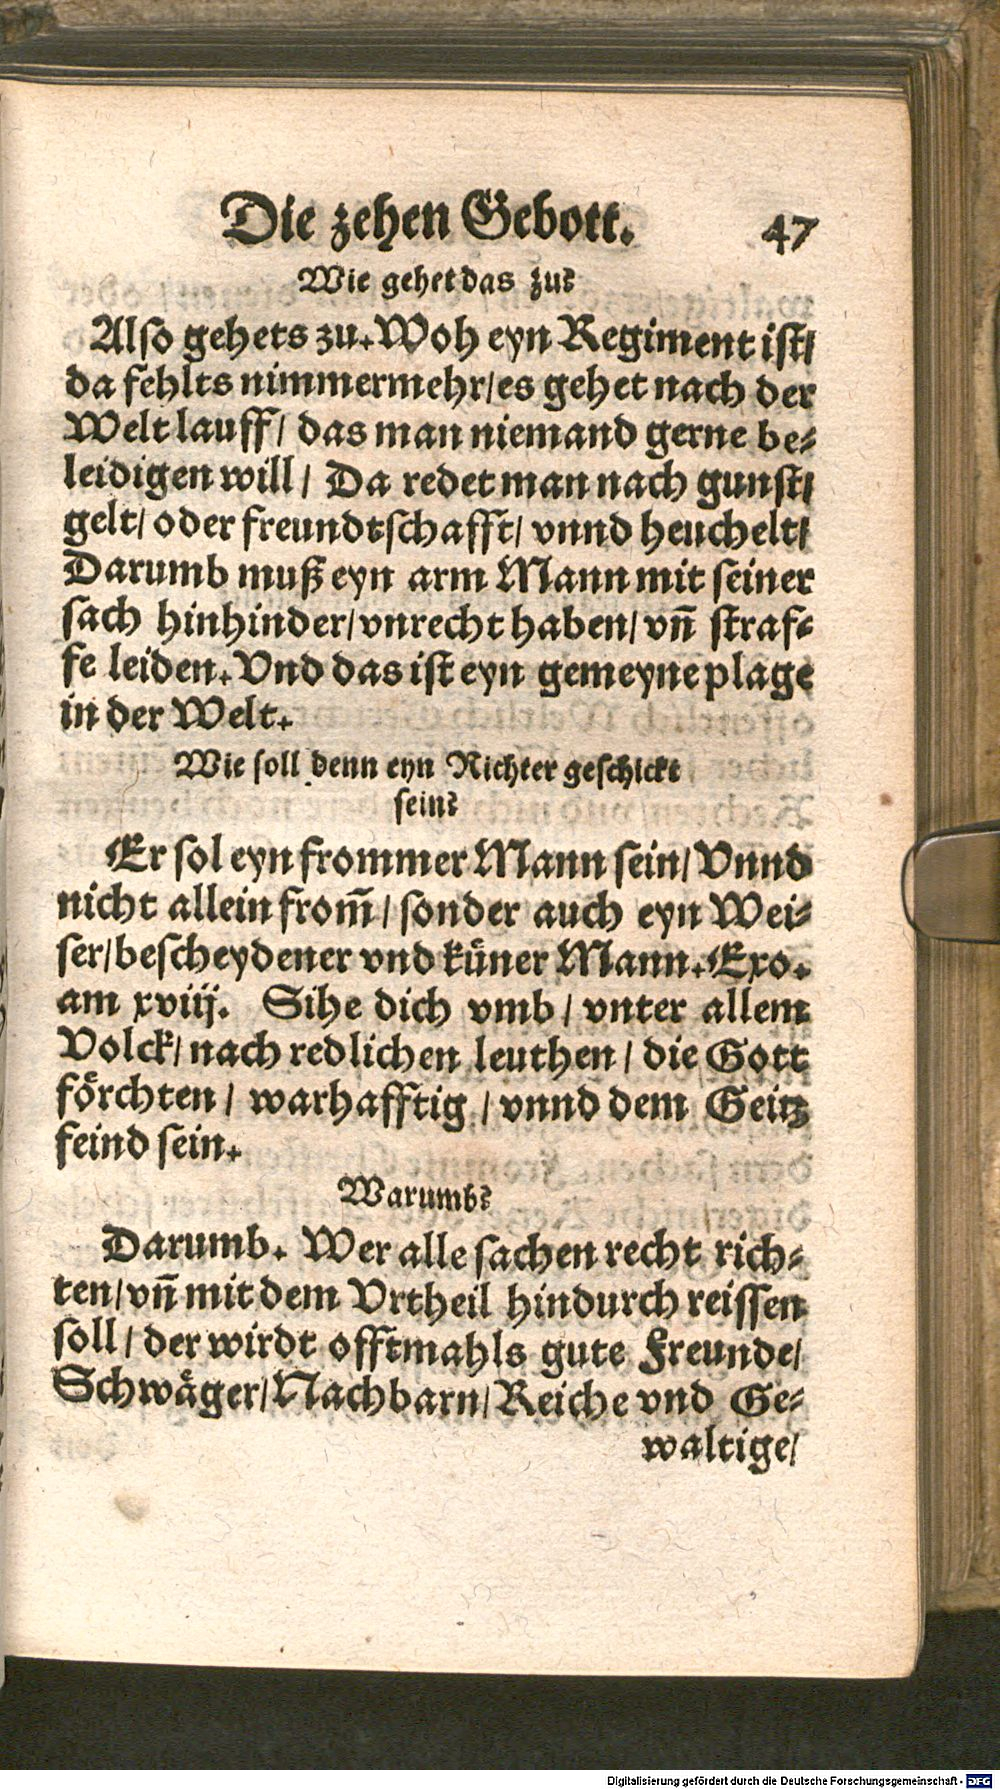 Die zehen Gebott. 47
Wie gehet das zu?
Also gehets zu. Woh eyn Regiment ist/
da fehlts nimmermehr/ es gehet nach der
Welt lauff/ das man niemand gerne be-
leidigen will/ Da redet man nach gunst/
gelt/ oder freundtschafft/ vnnd heuchelt/
Darumb muß eyn arm Mann mit seiner
sach hinhinder/ vnrecht haben/ vn̄ straf-
fe leiden. Vnd das ist eyn gemeyne plage
in der Welt.
Wie soll denn eyn Richter geschickt
sein?
Er sol eyn frommer Mann sein/ Vnnd
nicht allein from̄/ sonder auch eyn Wei-
ser/ bescheydener vnd kůner Mann. Exo.
am xviij. Sihe dich vmb/ vnter allem
Volck/ nach redlichen leuthen/ die Gott
foͤrchten/ warhafftig/ vnnd dem Geitz
feind sein.
Warumb?
Darumb. Wer alle sachen recht rich-
ten/ vn̄ mit dem Vrtheil hindurch reissen
soll/ der wirdt offtmahls gute Freunde/
Schwaͤger/ Nachbarn/ Reiche vnd Ge-
waltige/
Digitalisierung gefördert durch die Deutsche Forschungsgemeinschaft - DFG